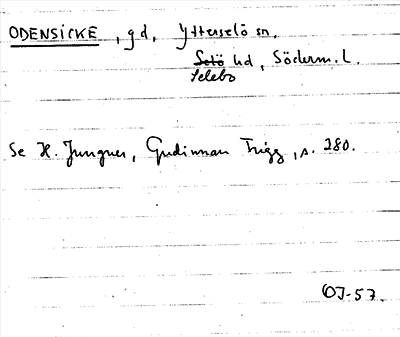 ODENSICKE, gd, Ytterselö sn.
Selö hd, Söderm. L.
Selebo
Se H. Jungner, Gudinnan Frigg, s. 280.
OJ-57.